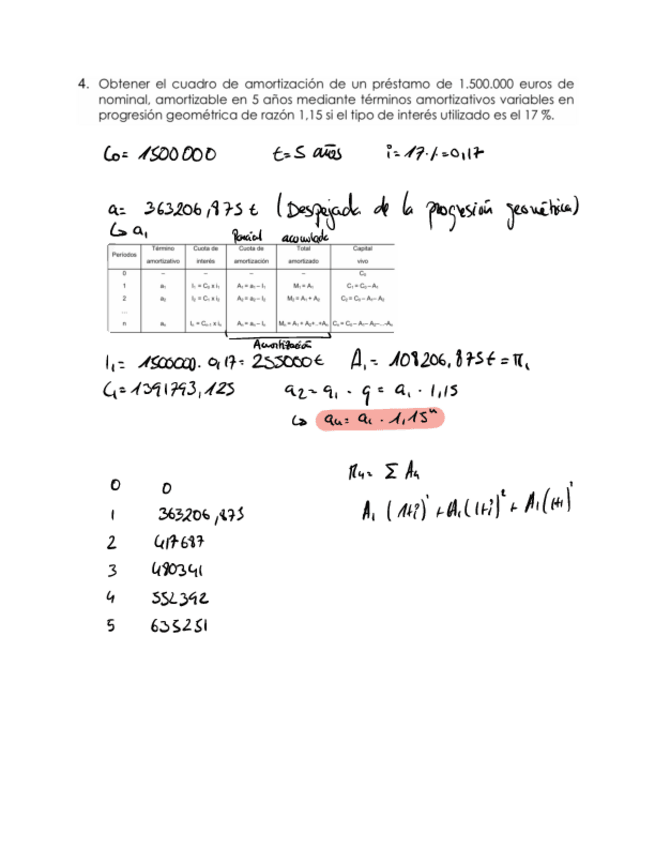 4. Obtener el cuadro de amortización de un préstamo de 1.500.000 euros de
nominal, amortizable en 5 años mediante términos amortizativos variables en
progresión geométrica de razón 1,15 si el tipo de interés utilizado es el 17 %.
C₀= 1500000 t=5 años i=17%=0,17
a= 363206,875€ (Despejada de la progresión geométrica)
↳ a₁
Parcial acumulada
Periodos Término amortizativo Cuota de interés Cuota de amortización Total amortizado Capital vivo
0 – – – – C₀
1 a₁ I₁ = C₀ x i₁ A₁ = a₁ – I₁ M₁ = A₁ C₁ = C₀ – A₁
2 a₂ I₂ = C₁ x i₂ A₂ = a₂ – I₂ M₂ = A₁ + A₂ C₂ = C₀ – A₁ – A₂
...
n aₙ Iₙ = Cₙ₋₁ x iₙ Aₙ = aₙ – Iₙ Mₙ = A₁ + A₂+..+Aₙ Cₙ = C₀ – A₁ – A₂–...–Aₙ
Amortización
I₁= 1500000 · 0,17= 255000€ A₁= 108206,875€ = M₁
C₁=1391793,125 a₂= a₁ · q = a₁ · 1,15
↳ a₄= a₁ · 1,15⁴
M₄= Σ A₄
0 0
A₁ (1+i)¹ + A₁(1+i)² + A₁(1+i)³
1 363206,875
2 417687
3 480341
4 552392
5 635251